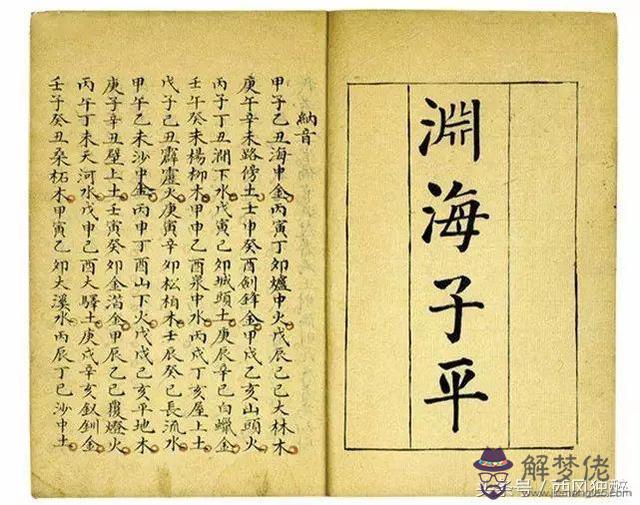 淵海子平
納音
甲子乙丑海中金丙寅丁卯爐中火戊辰己巳大林木
庚午辛未路傍土壬申癸酉劍鋒金甲戌乙亥山頭火
丙子丁丑澗下水戊寅己卯城頭土庚辰辛巳白蠟金
壬午癸未楊柳木甲申乙酉泉中水丙戌丁亥屋上土
戊子己丑霹靂火庚寅辛卯松柏木壬辰癸巳長流水
甲午乙未沙中金丙申丁酉山下火戊戌己亥平地木
庚子辛丑壁上土壬寅癸卯金箔金甲辰乙巳覆燈火
丙午丁未天河水戊申己酉大驛土庚戌辛亥釵釧金
壬子癸丑桑柘木甲寅乙卯大溪水丙辰丁巳沙中土
解梦佬
头条号 / 西风独醉